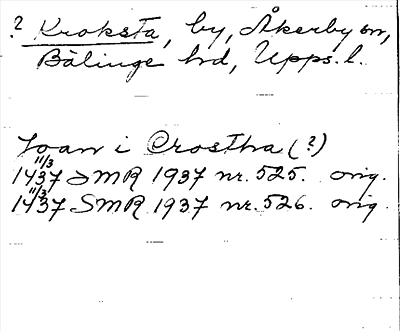 ? Kroksta, by, Åkerby sn,
Bälinge hd, Upps. l.
Joan i Crostha (?)
11/3
1437 SMR 1937 nr. 525. orig.
11/3
1437 SMR 1937 nr. 526. orig.